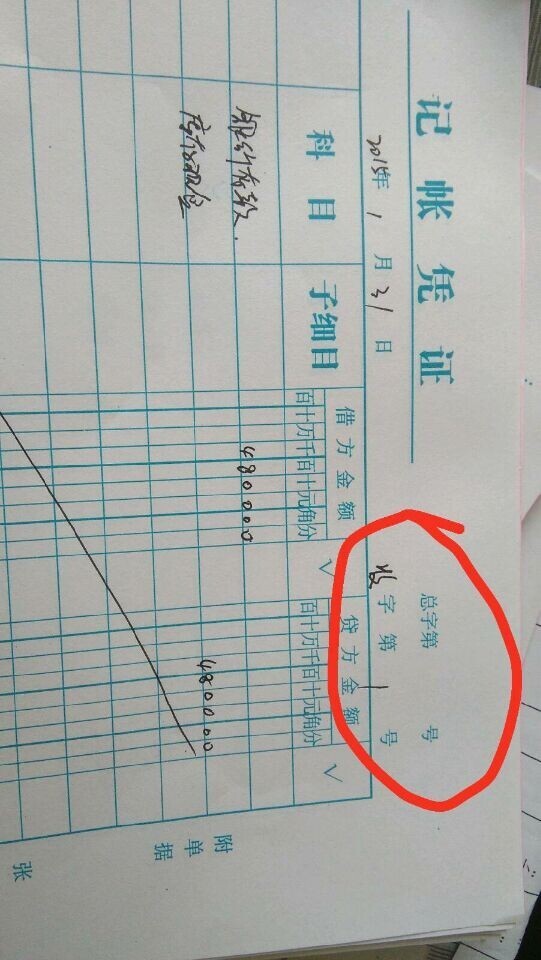 记帐凭证
总字第 号
2015年1月31日
收字第1号
科目 子细目 借方金额 √ 贷方金额 √
百十万千百十元角分 百十万千百十元角分
银行存款. 480000
库存现金 480000
附单据 张